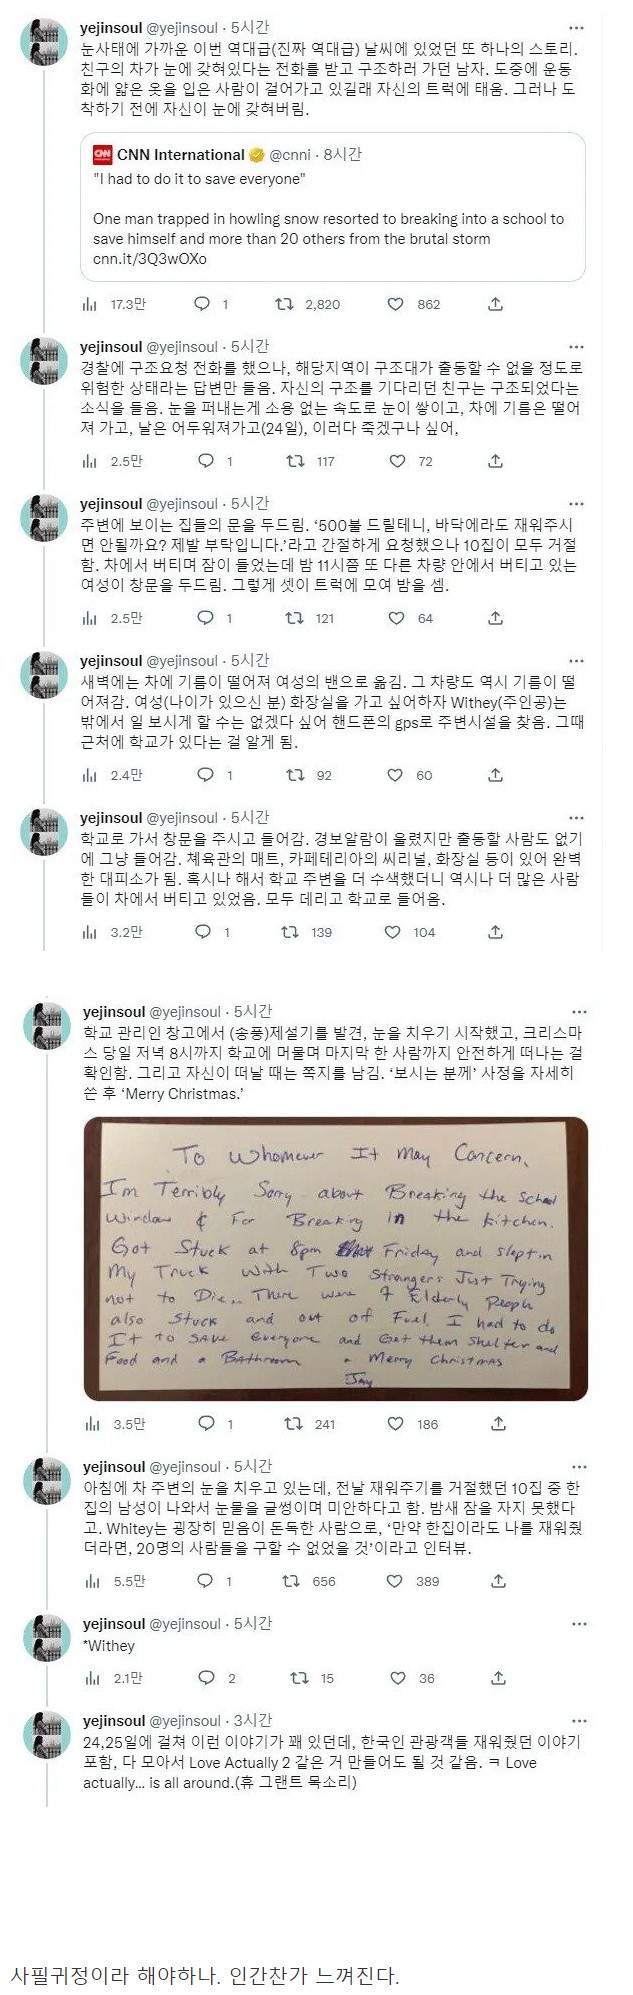 yejinsoul @yejinsoul · 5시간
눈사태에 가까운 이번 역대급(진짜 역대급) 날씨에 있었던 또 하나의 스토리.
친구의 차가 눈에 갇혀있다는 전화를 받고 구조하러 가던 남자. 도중에 운동
화에 얇은 옷을 입은 사람이 걸어가고 있길래 자신의 트럭에 태움. 그러나 도
착하기 전에 자신이 눈에 갇혀버림.
CNN International @cnni · 8시간
"I had to do it to save everyone"
One man trapped in howling snow resorted to breaking into a school to
save himself and more than 20 others from the brutal storm
cnn.it/3Q3wOXo
17.3만 1 2,820 862
yejinsoul @yejinsoul · 5시간
경찰에 구조요청 전화를 했으나, 해당지역이 구조대가 출동할 수 없을 정도로
위험한 상태라는 답변만 들음. 자신의 구조를 기다리던 친구는 구조되었다는
소식을 들음. 눈을 퍼내는게 소용 없는 속도로 눈이 쌓이고, 차에 기름은 떨어
져 가고, 날은 어두워져가고(24일), 이러다 죽겠구나 싶어,
2.5만 1 117 72
yejinsoul @yejinsoul · 5시간
주변에 보이는 집들의 문을 두드림. ‘500불 드릴테니, 바닥에라도 재워주시
면 안될까요? 제발 부탁입니다.’라고 간절하게 요청했으나 10집이 모두 거절
함. 차에서 버티며 잠이 들었는데 밤 11시쯤 또 다른 차량 안에서 버티고 있는
여성이 창문을 두드림. 그렇게 셋이 트럭에 모여 밤을 셈.
2.5만 1 121 64
yejinsoul @yejinsoul · 5시간
새벽에는 차에 기름이 떨어져 여성의 밴으로 옮김. 그 차량도 역시 기름이 떨
어져감. 여성(나이가 있으신 분) 화장실을 가고 싶어하자 Withey(주인공)는
밖에서 일 보시게 할 수는 없겠다 싶어 핸드폰의 gps로 주변시설을 찾음. 그때
근처에 학교가 있다는 걸 알게 됨.
2.4만 1 92 60
yejinsoul @yejinsoul · 5시간
학교로 가서 창문을 주시고 들어감. 경보알람이 울렸지만 출동할 사람도 없기
에 그냥 들어감. 체육관의 매트, 카페테리아의 씨리널, 화장실 등이 있어 완벽
한 대피소가 됨. 혹시나 해서 학교 주변을 더 수색했더니 역시나 더 많은 사람
들이 차에서 버티고 있었음. 모두 데리고 학교로 들어옴.
3.2만 1 139 104
yejinsoul @yejinsoul · 5시간
학교 관리인 창고에서 (송풍)제설기를 발견, 눈을 치우기 시작했고, 크리스마
스 당일 저녁 8시까지 학교에 머물며 마지막 한 사람까지 안전하게 떠나는 걸
확인함. 그리고 자신이 떠날 때는 쪽지를 남김. ‘보시는 분께’ 사정을 자세히
쓴 후 ‘Merry Christmas.’
To Whomever It May Concern,
I'm Terribly Sorry about Breaking the School
Window & For Breaking in the kitchen.
Got Stuck at 8pm Friday and slept in
My Truck with Two Strangers Just Trying
not to Die.. There were 7 Elderly People
also Stuck and out of Fuel. I had to do
It to save everyone and Get them Shelter and
Food and a Bathroom . Merry Christmas
Jay
3.5만 1 241 186
yejinsoul @yejinsoul · 5시간
아침에 차 주변의 눈을 치우고 있는데, 전날 재워주기를 거절했던 10집 중 한
집의 남성이 나와서 눈물을 글썽이며 미안하다고 함. 밤새 잠을 자지 못했다
고. Whitey는 굉장히 믿음이 돈독한 사람으로, ‘만약 한집이라도 나를 재워줬
더라면, 20명의 사람들을 구할 수 없었을 것’이라고 인터뷰.
5.5만 1 656 389
yejinsoul @yejinsoul · 5시간
*Withey
2.1만 2 15 36
yejinsoul @yejinsoul · 3시간
24,25일에 걸쳐 이런 이야기가 꽤 있던데, 한국인 관광객들 재워줬던 이야기
포함, 다 모아서 Love Actually 2 같은 거 만들어도 될 것 같음. ㅋ Love
actually... is all around.(휴 그랜트 목소리)
사필귀정이라 해야하나. 인간찬가 느껴진다.